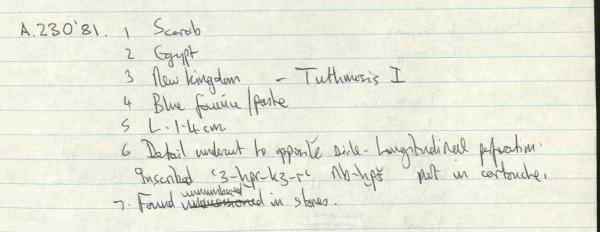 A.230'81. 1 Scarab
2 Egypt
3 New Kingdom - Tuthmosis I
4 Blue faience/paste
5 L. 1.4 cm
6 Detail undercut to opposite side. Longitudinal perforation.
Inscribed ꜥ3-ḫpr-k3-rꜥ Nb-ḫpš put in cartouche.
7. Found unnumbered in stores.